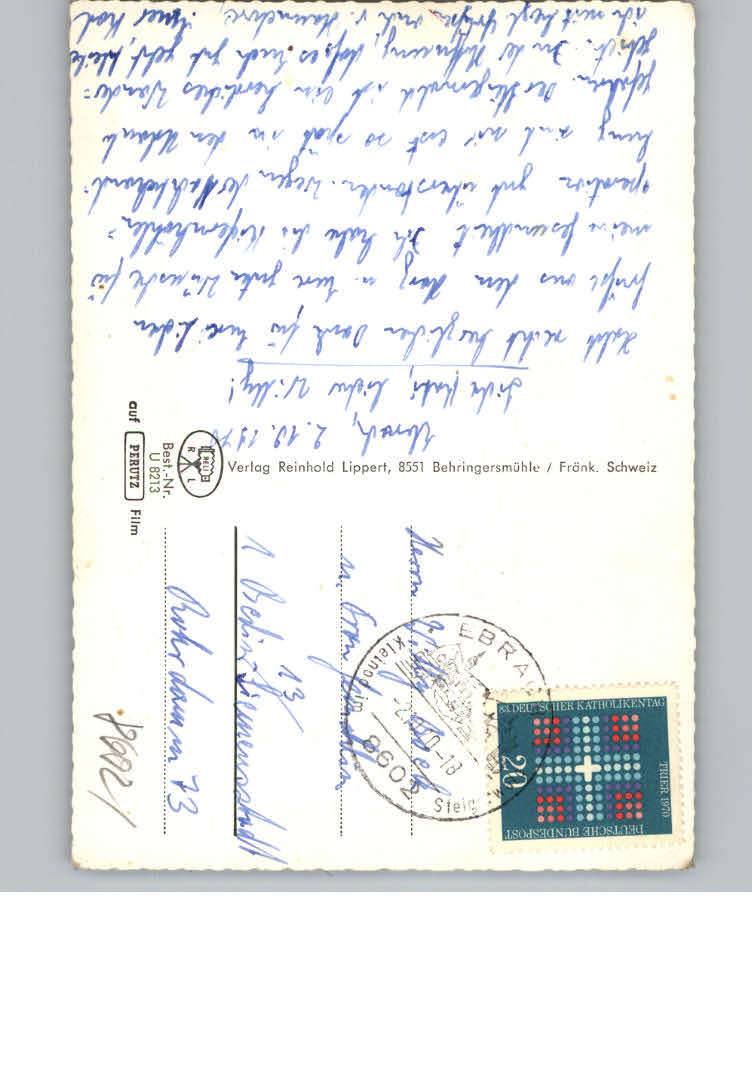 Ebrach, 2.10.1970
Liebe Käti, lieber Willy!
Habt recht herzlichen Dank für Eure lieben
Grüße aus dem Harz u. Eure guten Wünsche für
meine Gesundheit. Ich habe die Kiefernhöhlen-
operation gut überstanden. Wegen der Nachbehand-
lung sind wir erst so spät in den Urlaub
gefahren. Der Steigerwald ist ein herrliches Wander-
gebiet. In der Hoffnung, daß es Euch gut geht, bleibe
ich mit herzl. Grüßen auch v. Hannelore, Euer Karl
Verlag Reinhold Lippert, 8551 Behringersmühle / Fränk. Schweiz
RELI
R L
Best.-Nr.
U 8213
auf PERUTZ Film
Herrn Willy
u. Frau
1 Berlin 13/
Siemensstadt
Rohrdamm 73
8602 EBRACH
Kleinod im
Steig
83. DEUTSCHER KATHOLIKENTAG
TRIER 1970
20
DEUTSCHE BUNDESPOST